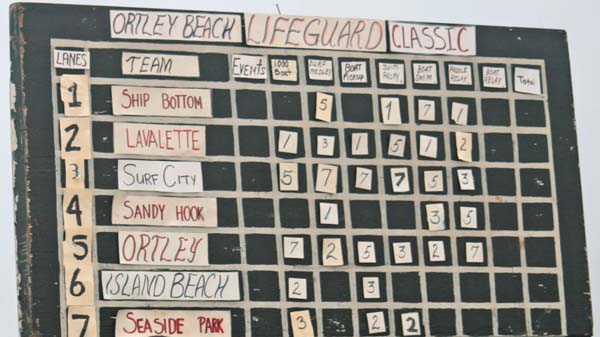 ORTLEY BEACH LIFEGUARD CLASSIC
LANES TEAM Events 1000 Boat SURF MEDLEY BOAT Pickup SWIM RELAY BOAT SWIM PADDLE RELAY BOAT RELAY Total
1 SHIP BOTTOM 5 1 7 1
2 LAVALETTE 1 3 1 5 1 2
3 SURF CITY 5 7 7 7 5 3
4 SANDY HOOK 1 3 5
5 ORTLEY 7 2 5 3 2 7
6 ISLAND BEACH 2 3
7 SEASIDE PARK 3 2 2